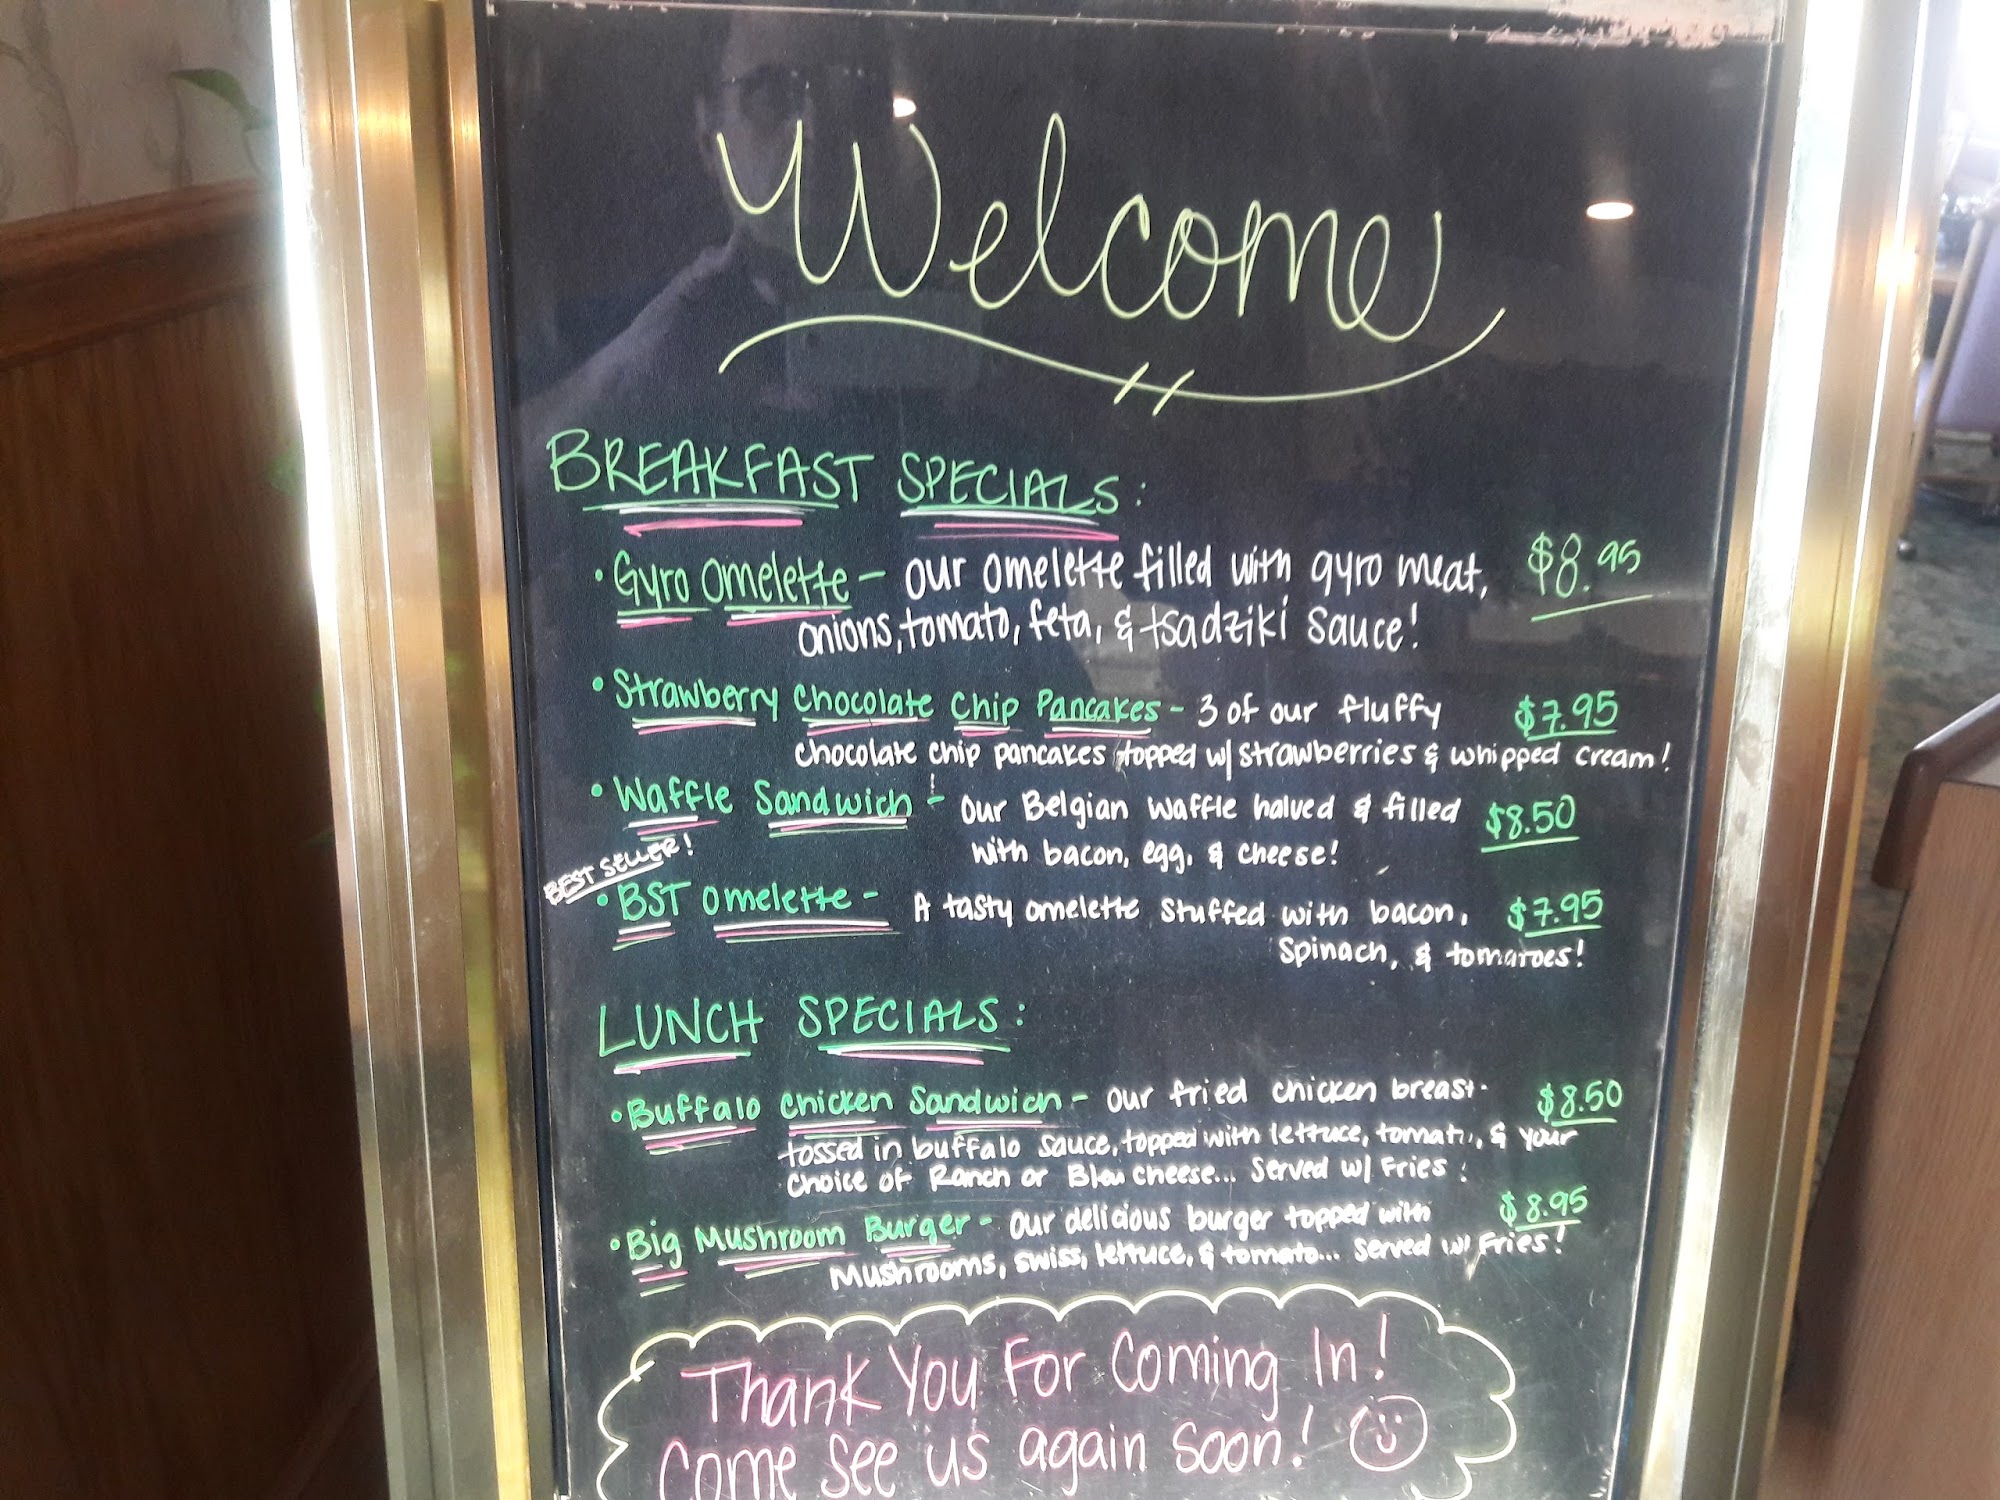 Welcome
BREAKFAST SPECIALS:
• Gyro Omelette - our omelette filled with gyro meat, $8.95
onions, tomato, feta, & tsadziki sauce!
• Strawberry Chocolate Chip Pancakes - 3 of our fluffy $7.95
chocolate chip pancakes topped w/ strawberries & whipped cream!
• Waffle Sandwich - our Belgian waffle halved & filled $8.50
with bacon, egg, & cheese!
BEST SELLER!
• BST Omelette - A tasty omelette stuffed with bacon, $7.95
spinach, & tomatoes!
LUNCH SPECIALS:
• Buffalo Chicken Sandwich - our fried chicken breast $8.50
tossed in buffalo sauce, topped with lettuce, & your
choice of Ranch or Bleu cheese... served w/ Fries!
• Big Mushroom Burger - our delicious burger topped with $8.95
Mushrooms, swiss, lettuce, & tomato... served w/ Fries!
Thank You For Coming In!
Come see us again soon!